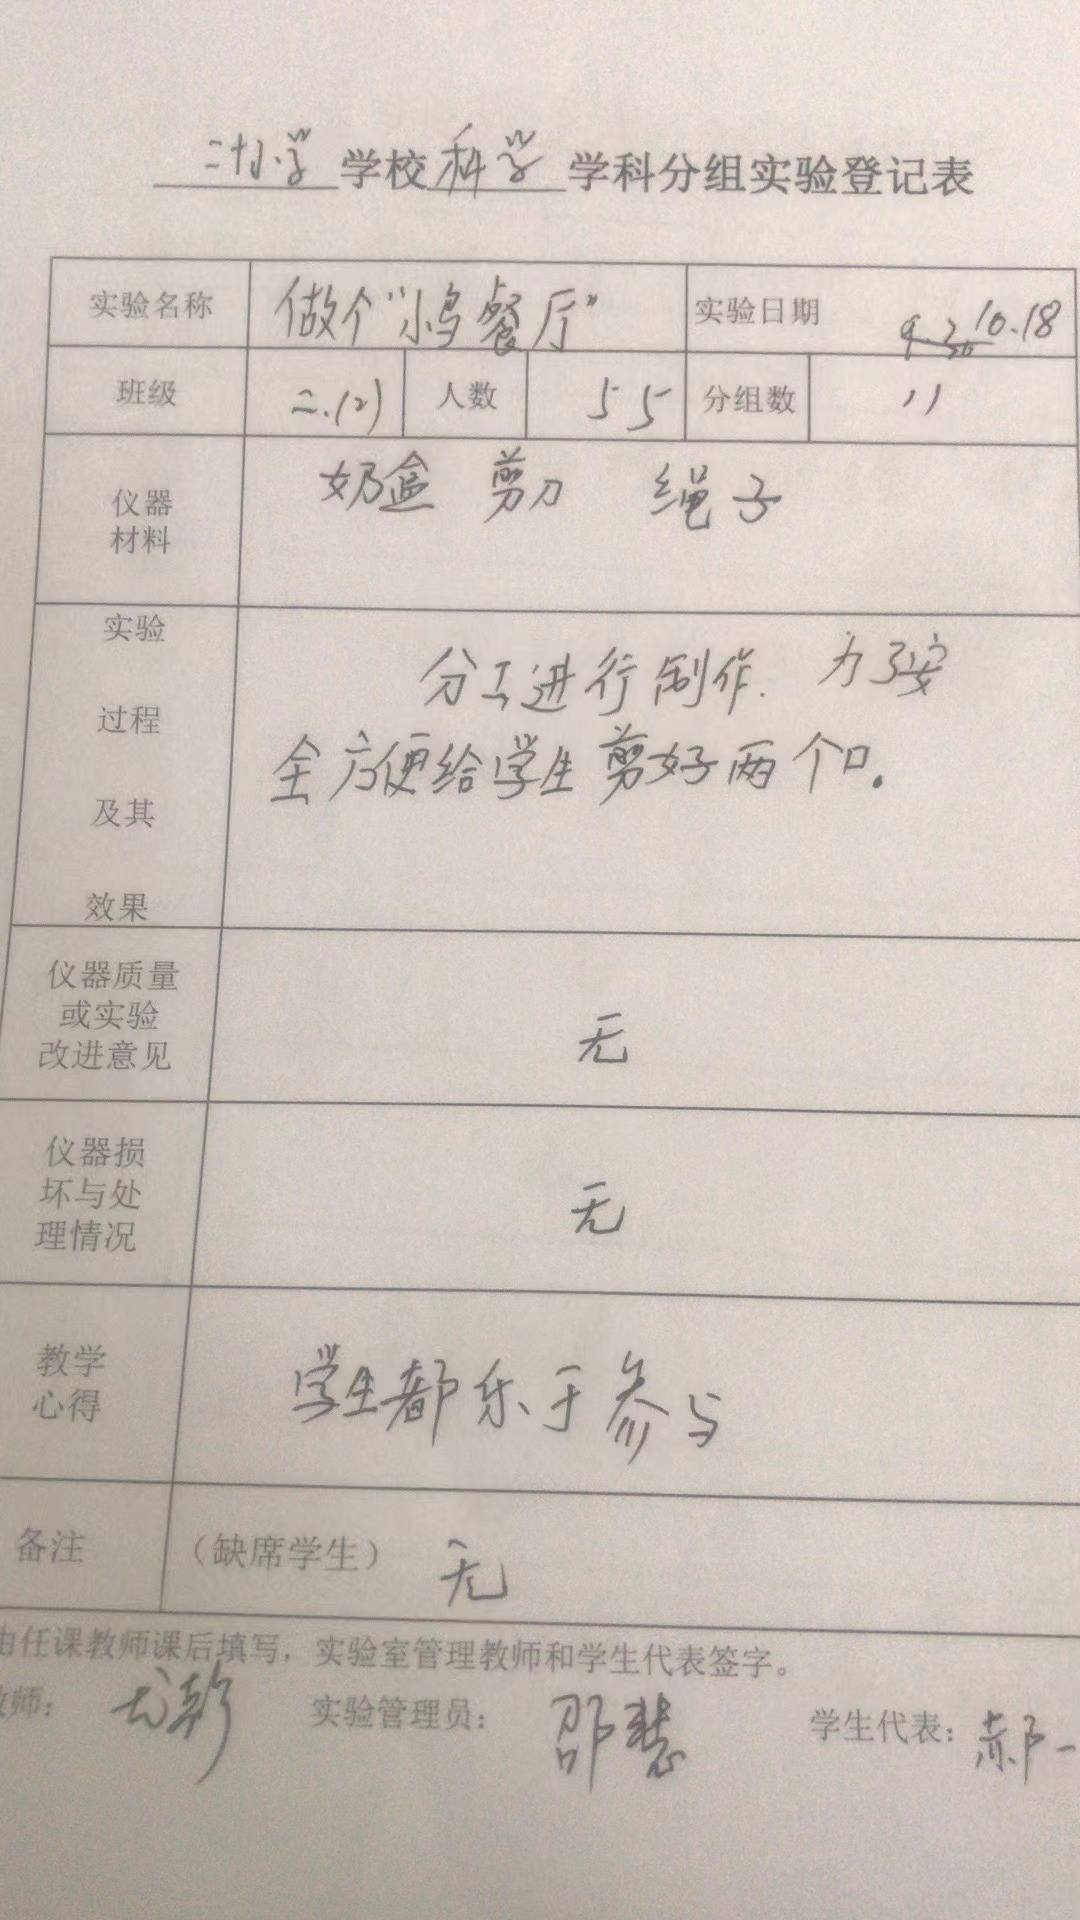 二十小学 学校 科学 学科分组实验登记表
实验名称 做个“小鸟餐厅” 实验日期 10.18
班级 二.(2) 人数 55 分组数 11
仪器材料 奶盒 剪刀 绳子
实验
过程
及其
效果
分工进行制作. 为了安
全方便给学生剪好两个口。
仪器质量
或实验
改进意见
无
仪器损
坏与处
理情况
无
教学
心得
学生都乐于参与
备注 (缺席学生) 无
由任课教师课后填写，实验室管理教师和学生代表签字。
教师: 实验管理员: 邵慧 学生代表: 郝一